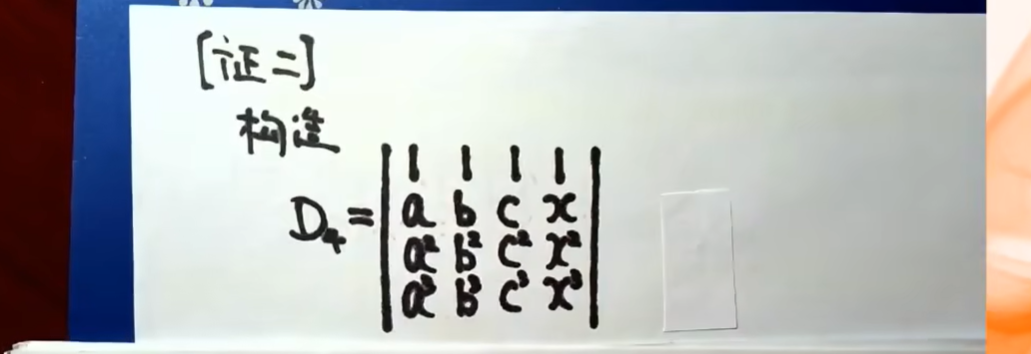 [证二]
构造
D₄ = | 1 1 1 1 |
| a b c x |
| a² b² c² x² |
| a³ b³ c³ x³ |